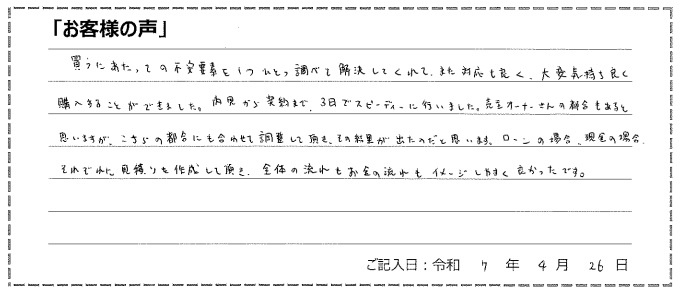 「お客様の声」
買うにあたっての不安要素を1つひとつ調べて解決してくれて、また対応も良く、大変気持ち良く
購入することができました。内見から契約まで、3日でスピーディーに行いました。売主オーナーさんの都合もあると
思いますが、こちらの都合にも合わせて調整して頂き、その結果が出たのだと思います。ローンの場合、現金の場合、
それぞれに見積りを作成して頂き、全体の流れもお金の流れもイメージしやすく良かったです。
ご記入日：令和 7 年 4 月 26 日